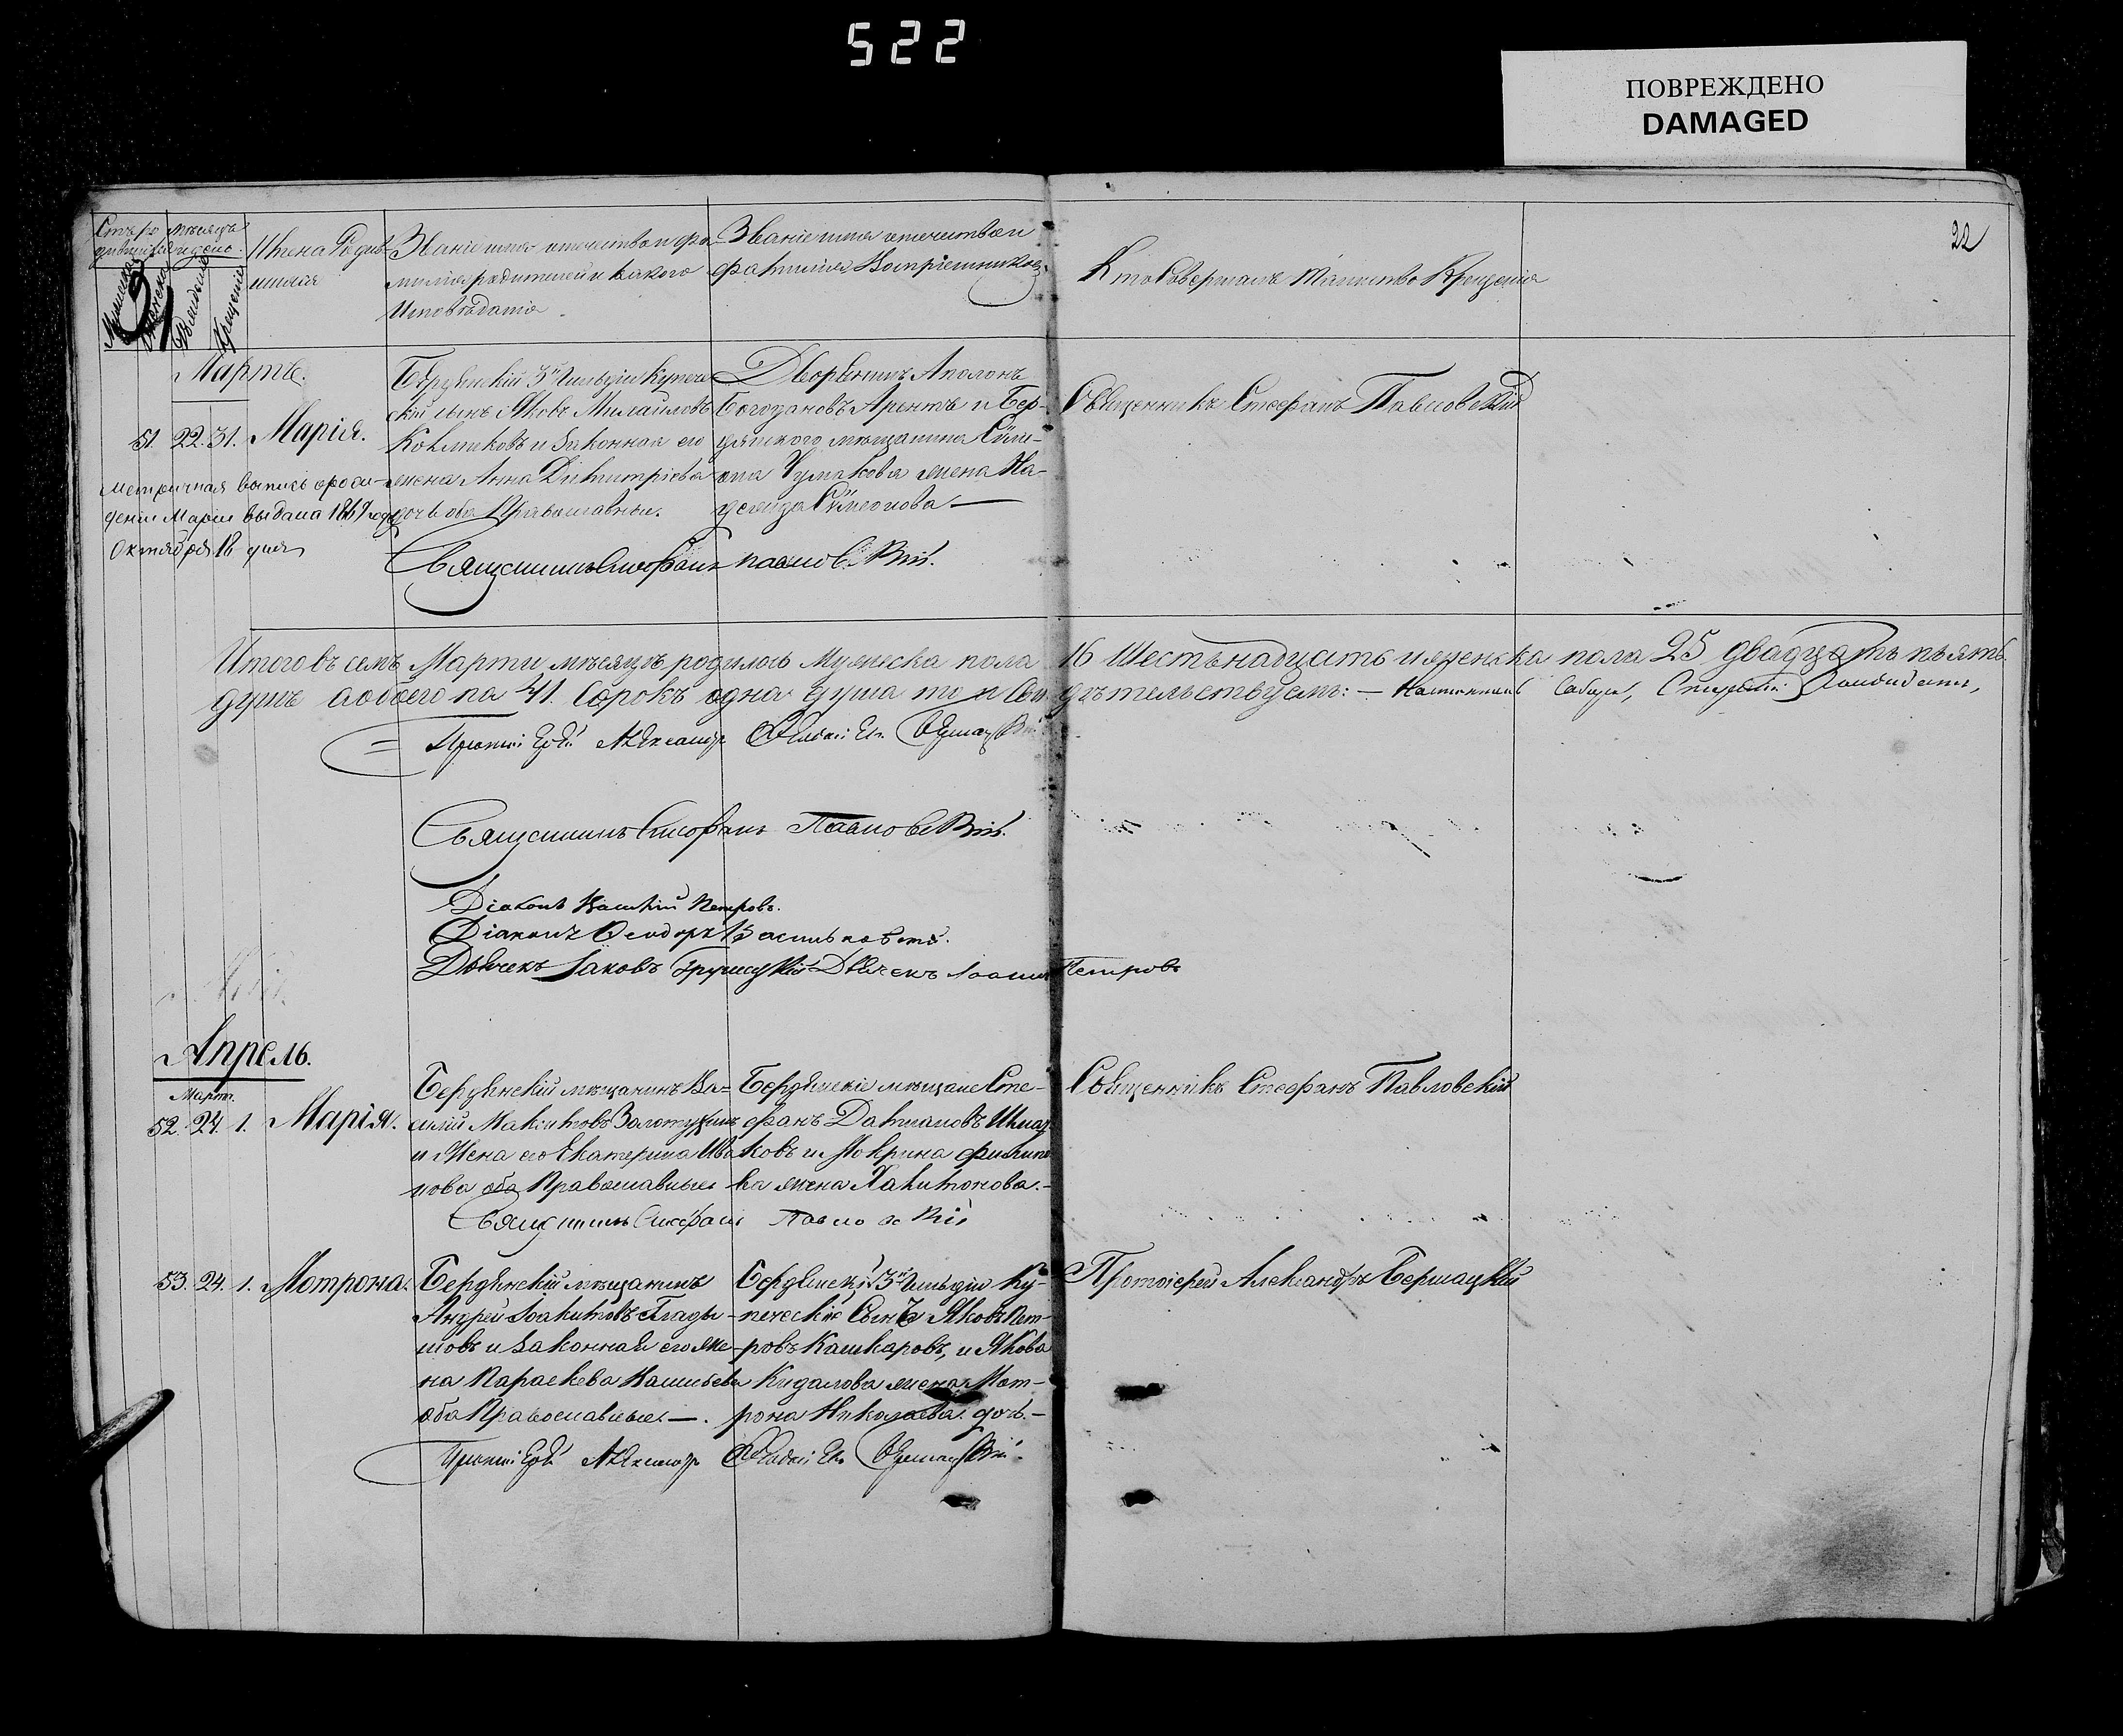 522
ПОВРЕЖДЕНО
DAMAGED
22
Счетъ
Мѣсяцъ и день.
Имена Родив-
шихся
Званіе имя отчество и фа-
милія родителей и какого
Исповѣданія.
Званіе имя отчество и
фамилія Воспріемниковъ.
Кто Совершалъ Таинство Крещенія
Мартъ.
51. 22. 31. Марія.
Бердянскій 3й Гильдіи Купече-
скій сынъ Яковъ Михайловъ
и законная его
жена Анна Димитріева
дочь оба Православныи.
Дворянинъ Аполонъ
Богдановъ Арентъ и Бер-
дянского мѣщанина Сѵме-
она Чумакова жена На-
дежда Сѵмеонова —
Священникъ Стефанъ Павловскій
Метричная выпись о рож-
деніи Маріи выдана 1869 года
Октября 18 дня
Священникъ Стефанъ Павловскій.
Итого въ семъ Марти мѣсяцѣ родилось Мужеска пола 16 Шестьнадцать и женска пола 25 двадцать пьять
душъ а обоего по 41. Сорокъ одна душа то и Свидѣтельствуемъ: —
Протоіерей Александръ
Священникъ Стефанъ Павловскій.
Діаконъ Василій Петровъ.
Діаконъ Феодоръ
Дьячекъ Іаковъ Дьячекъ Іоаннъ Петровъ
Апрель.
Март.
52. 24. 1. Марія.
Бердянскій мѣщанинъ Ва-
силій Максимовъ Золотухинъ
и жена его Екатерина Ива-
нова оба Православные
Бердянскіе мѣщане Сте-
фанъ Даміановъ
и Мокрина Филипо-
ва жена Харитонова. —
Священникъ Стефанъ Павловскій
Священникъ Стефанъ Павловскій
53. 24. 1. Мотрона.
Бердянскій мѣщанинъ
Андрей Іоакимовъ
и законная его же-
на Параскева Васильева
оба Православные. —.
Бердянскій 3й Гильдіи Ку-
печескій Сынъ Яковъ Пет-
ровъ Кашкаровъ, и Якова
Кидалова жена Мот-
рона Николаева. дочь. —
Протоіерей Александръ Бершацкій
Протоіерей Александръ